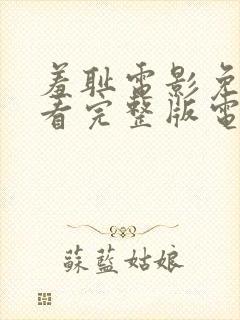 羞耻電影免
看完整版電
蘇藍姑娘